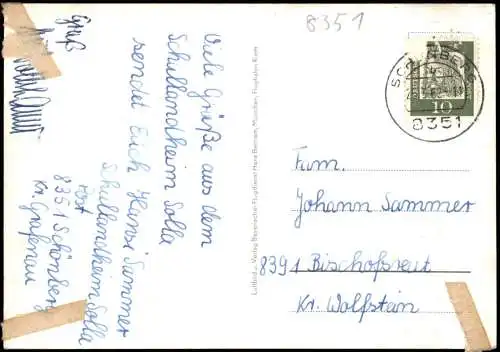 8351
Viele Grüße aus dem
Schullandheim Solla
sendet Euch Hansi Sammer
Schullandheim Solla
Post
8351 Schönberg
Kr. Grafenau
Gruß
Luftbild u. Verlag Bayerischer Flugdienst Hans Bertram, München, Flughafen Riem
8351
10
Fam.
Johann Sammer
8391 Bischofsreut
Kr. Wolfstein